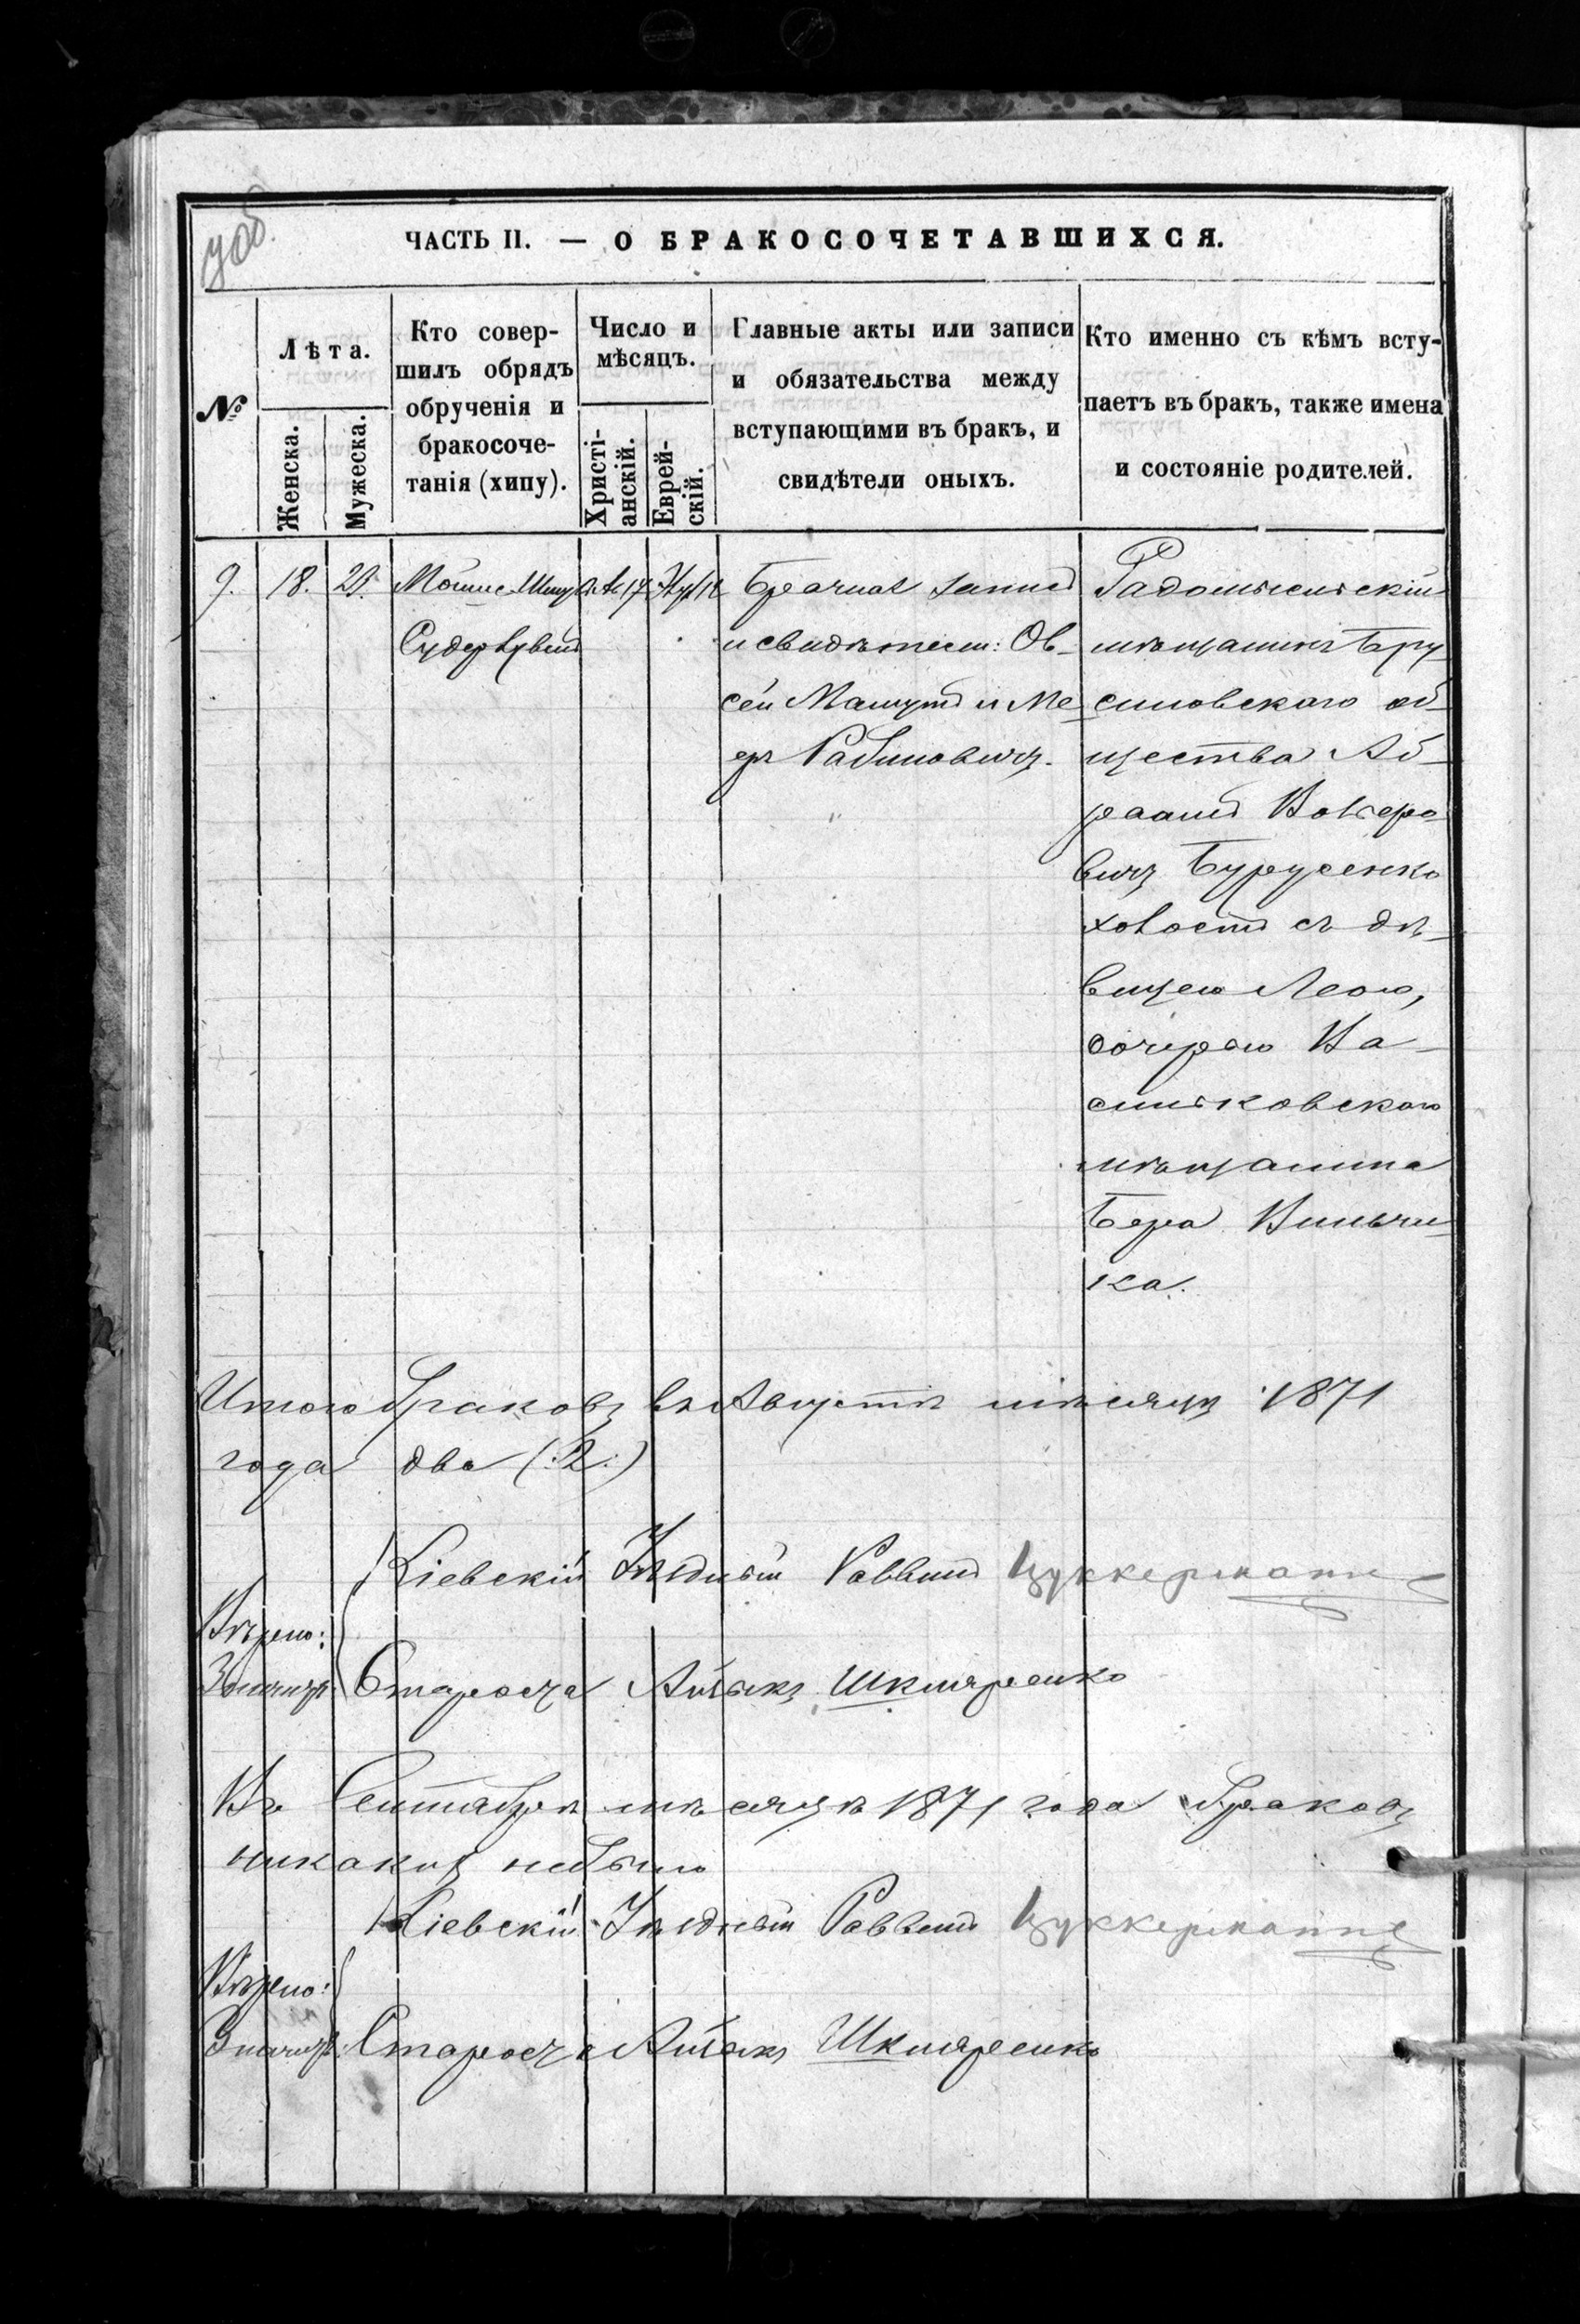 ЧАСТЬ II. — О БРАКОСОЧЕТАВШИХСЯ.
№
Лѣта.
Женска.
Мужеска.
Кто совер-
шилъ обрядъ
обрученія и
бракосоче-
танія (хипу).
Число и
мѣсяцъ.
Христі-
анскій.
Еврей-
скій.
Главные акты или записи
и обязательства между
вступающими въ бракъ, и
свидѣтели оныхъ.
Кто именно съ кѣмъ всту-
паетъ въ бракъ, также имена
и состояніе родителей.
9.
18.
Мошис
17
свидѣтели: Ов-
сей и Ме-
еръ Рабиновичъ.
Радомысльскій
мѣщанинъ Бру-
силовскаго об-
щества Аб-
раамъ
вичъ
съ дѣ-
вицею Леою,
дочерью Ва-
сильковскаго
мѣщанина
Бера Вильчи-
ка.
Итого браковъ въ Августѣ мѣсяцѣ 1871
года два (:2:)
Кіевскій Уѣздный Раввинъ Цуккерманъ
Вѣрно:
Староста Айзикъ Шкляренко
Въ Сентябрѣ мѣсяцѣ 1871 года браковъ
никакихъ небыло
Кіевскій Уѣздный Раввинъ Цуккерманъ
Вѣрно:
Староста Айзикъ Шкляренко